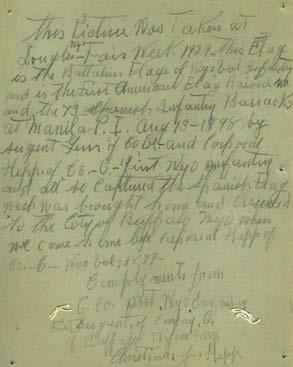 This Picture Was Taken at
Douglas Wyo Fair Week 1929 this Flag
is the Battalion Flage of Wyo bol Infantry
and is the First American Flag Raised
and the 73 Spanish Infantry Barracks
at Manila P. I. Aug 13-1898 by
Sergent of Co G and Corporal
Hepp. of Co. G. First Wyo Infantry
and all so Captured the Spanish Flag
wich was brought home and Presented
to the City of Buffalo Wyo when
we come home by Corporal Hepp of
Co. G. Wyo bol. 1899
Complyments from
G. Co. First. Wyo Infantry
First Sergent of Compay. G.
of Buffalo Wyoming
Christian J. Hepp